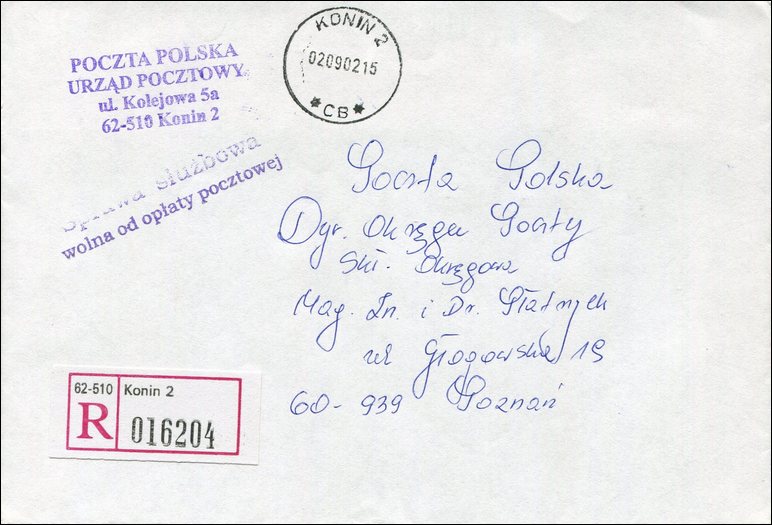 POCZTA POLSKA
URZĄD POCZTOWY
ul. Kolejowa 5a
62-510 Konin 2
KONIN 2
02090215
* CB *
Sprawa służbowa
wolna od opłaty pocztowej
Poczta Polska
Dyr. Okręgu Poczty
Skł. Okręgowa
Mag. Zn. i Dr. Płatnych
ul Głogowska 19
60-939 Poznań
62-510 Konin 2
R 016204